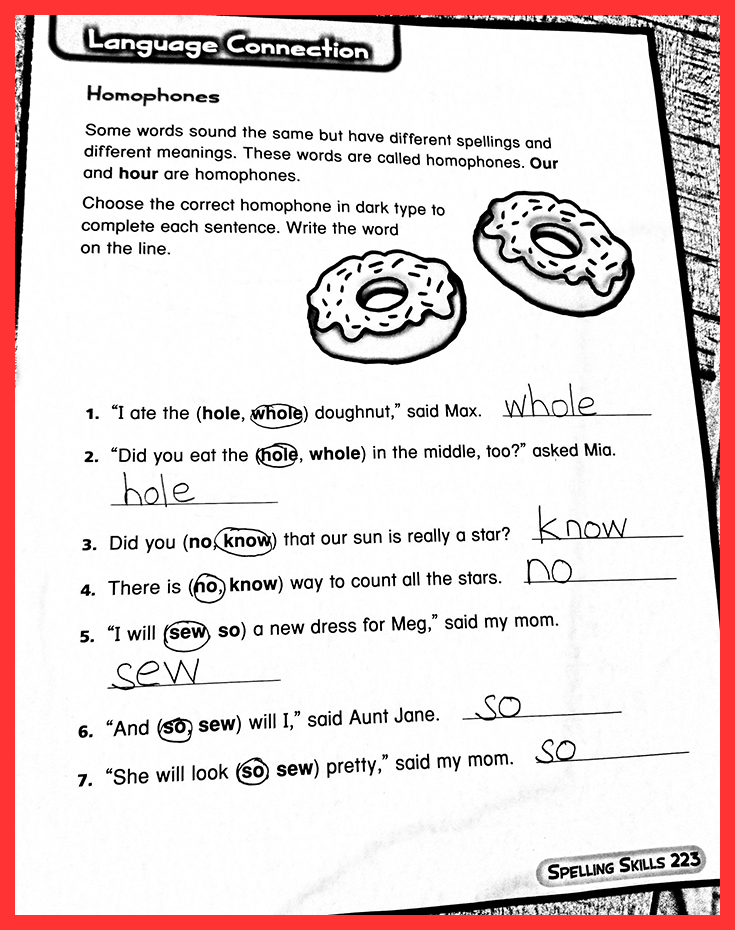 Language Connection
Homophones
Some words sound the same but have different spellings and
different meanings. These words are called homophones. Our
and hour are homophones.
Choose the correct homophone in dark type to
complete each sentence. Write the word
on the line.
1. “I ate the (hole, whole) doughnut,” said Max. whole
2. “Did you eat the (hole, whole) in the middle, too?” asked Mia.
hole
3. Did you (no, know) that our sun is really a star? know
4. There is (no, know) way to count all the stars. no
5. “I will (sew, so) a new dress for Meg,” said my mom.
sew
6. “And (so, sew) will I,” said Aunt Jane. so
7. “She will look (so, sew) pretty,” said my mom. so
SPELLING SKILLS 223